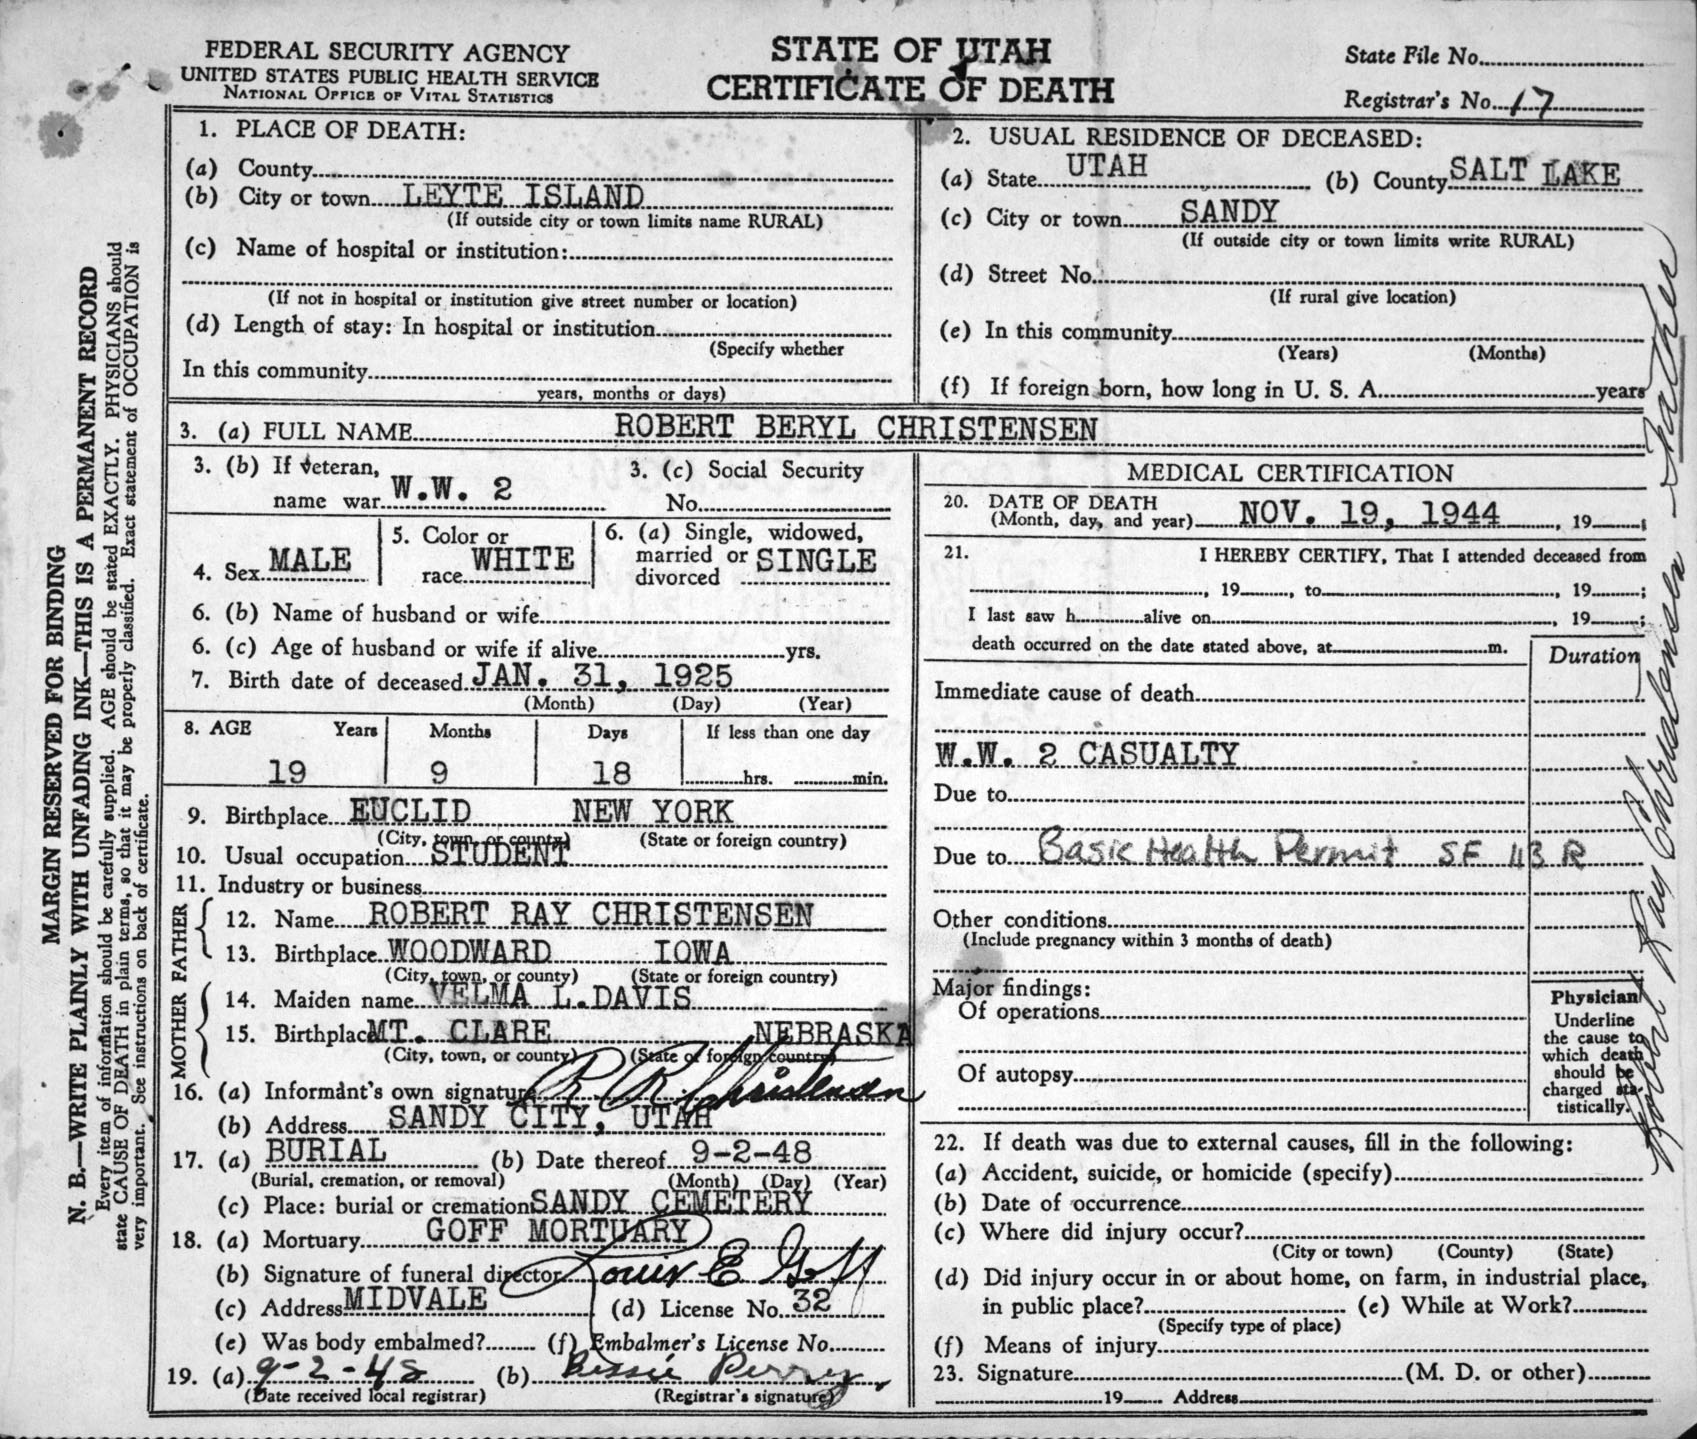 FEDERAL SECURITY AGENCY
UNITED STATES PUBLIC HEALTH SERVICE
NATIONAL OFFICE OF VITAL STATISTICS
STATE OF UTAH
CERTIFICATE OF DEATH
State File No.
Registrar's No. 17
MARGIN RESERVED FOR BINDING
N. B.—WRITE PLAINLY WITH UNFADING INK—THIS IS A PERMANENT RECORD
Every item of information should be carefully supplied. AGE should be stated EXACTLY. PHYSICIANS should
state CAUSE OF DEATH in plain terms, so that it may be properly classified. Exact statement of OCCUPATION is
very important. See instructions on back of certificate.
1. PLACE OF DEATH:
(a) County
(b) City or town LEYTE ISLAND
(If outside city or town limits name RURAL)
(c) Name of hospital or institution:
(If not in hospital or institution give street number or location)
(d) Length of stay: In hospital or institution
(Specify whether
In this community
years, months or days)
2. USUAL RESIDENCE OF DECEASED:
(a) State UTAH (b) County SALT LAKE
(c) City or town SANDY
(If outside city or town limits write RURAL)
(d) Street No.
(If rural give location)
(e) In this community
(Years) (Months)
(f) If foreign born, how long in U. S. A. years
3. (a) FULL NAME ROBERT BERYL CHRISTENSEN
3. (b) If veteran,
name war W.W. 2
3. (c) Social Security
No.
4. Sex MALE
5. Color or
race WHITE
6. (a) Single, widowed,
married or
divorced SINGLE
6. (b) Name of husband or wife
6. (c) Age of husband or wife if alive yrs.
7. Birth date of deceased JAN. 31, 1925
(Month) (Day) (Year)
8. AGE Years Months Days If less than one day
19 9 18 hrs. min.
9. Birthplace EUCLID NEW YORK
(City, town, or county) (State or foreign country)
10. Usual occupation STUDENT
11. Industry or business
FATHER
12. Name ROBERT RAY CHRISTENSEN
13. Birthplace WOODWARD IOWA
(City, town, or county) (State or foreign country)
MOTHER
14. Maiden name VELMA L. DAVIS
15. Birthplace MT. CLARE NEBRASKA
(City, town, or county) (State or foreign country)
16. (a) Informant's own signature R R Christensen
(b) Address SANDY CITY, UTAH
17. (a) BURIAL (b) Date thereof 9-2-48
(Burial, cremation, or removal) (Month) (Day) (Year)
(c) Place: burial or cremation SANDY CEMETERY
18. (a) Mortuary GOFF MORTUARY
(b) Signature of funeral director Louis E Goff
(c) Address MIDVALE (d) License No. 32
(e) Was body embalmed? (f) Embalmer's License No.
19. (a) 9-2-48 (b) Bessie Perry
(Date received local registrar) (Registrar's signature)
MEDICAL CERTIFICATION
20. DATE OF DEATH
(Month, day, and year) NOV. 19, 1944, 19 ;
21. I HEREBY CERTIFY, That I attended deceased from
, 19 , to , 19 ;
I last saw h alive on , 19 ;
death occurred on the date stated above, at m.
Duration
Immediate cause of death
W.W. 2 CASUALTY
Due to
Due to Basic Health Permit SF 113 R
Other conditions
(Include pregnancy within 3 months of death)
Major findings:
Of operations
Of autopsy
Physician
Underline
the cause to
which death
should be
charged sta-
tistically.
22. If death was due to external causes, fill in the following:
(a) Accident, suicide, or homicide (specify)
(b) Date of occurrence
(c) Where did injury occur?
(City or town) (County) (State)
(d) Did injury occur in or about home, on farm, in industrial place,
in public place? (e) While at Work?
(Specify type of place)
(f) Means of injury
23. Signature (M. D. or other)
19 Address
Robert Ray Christensen - Father